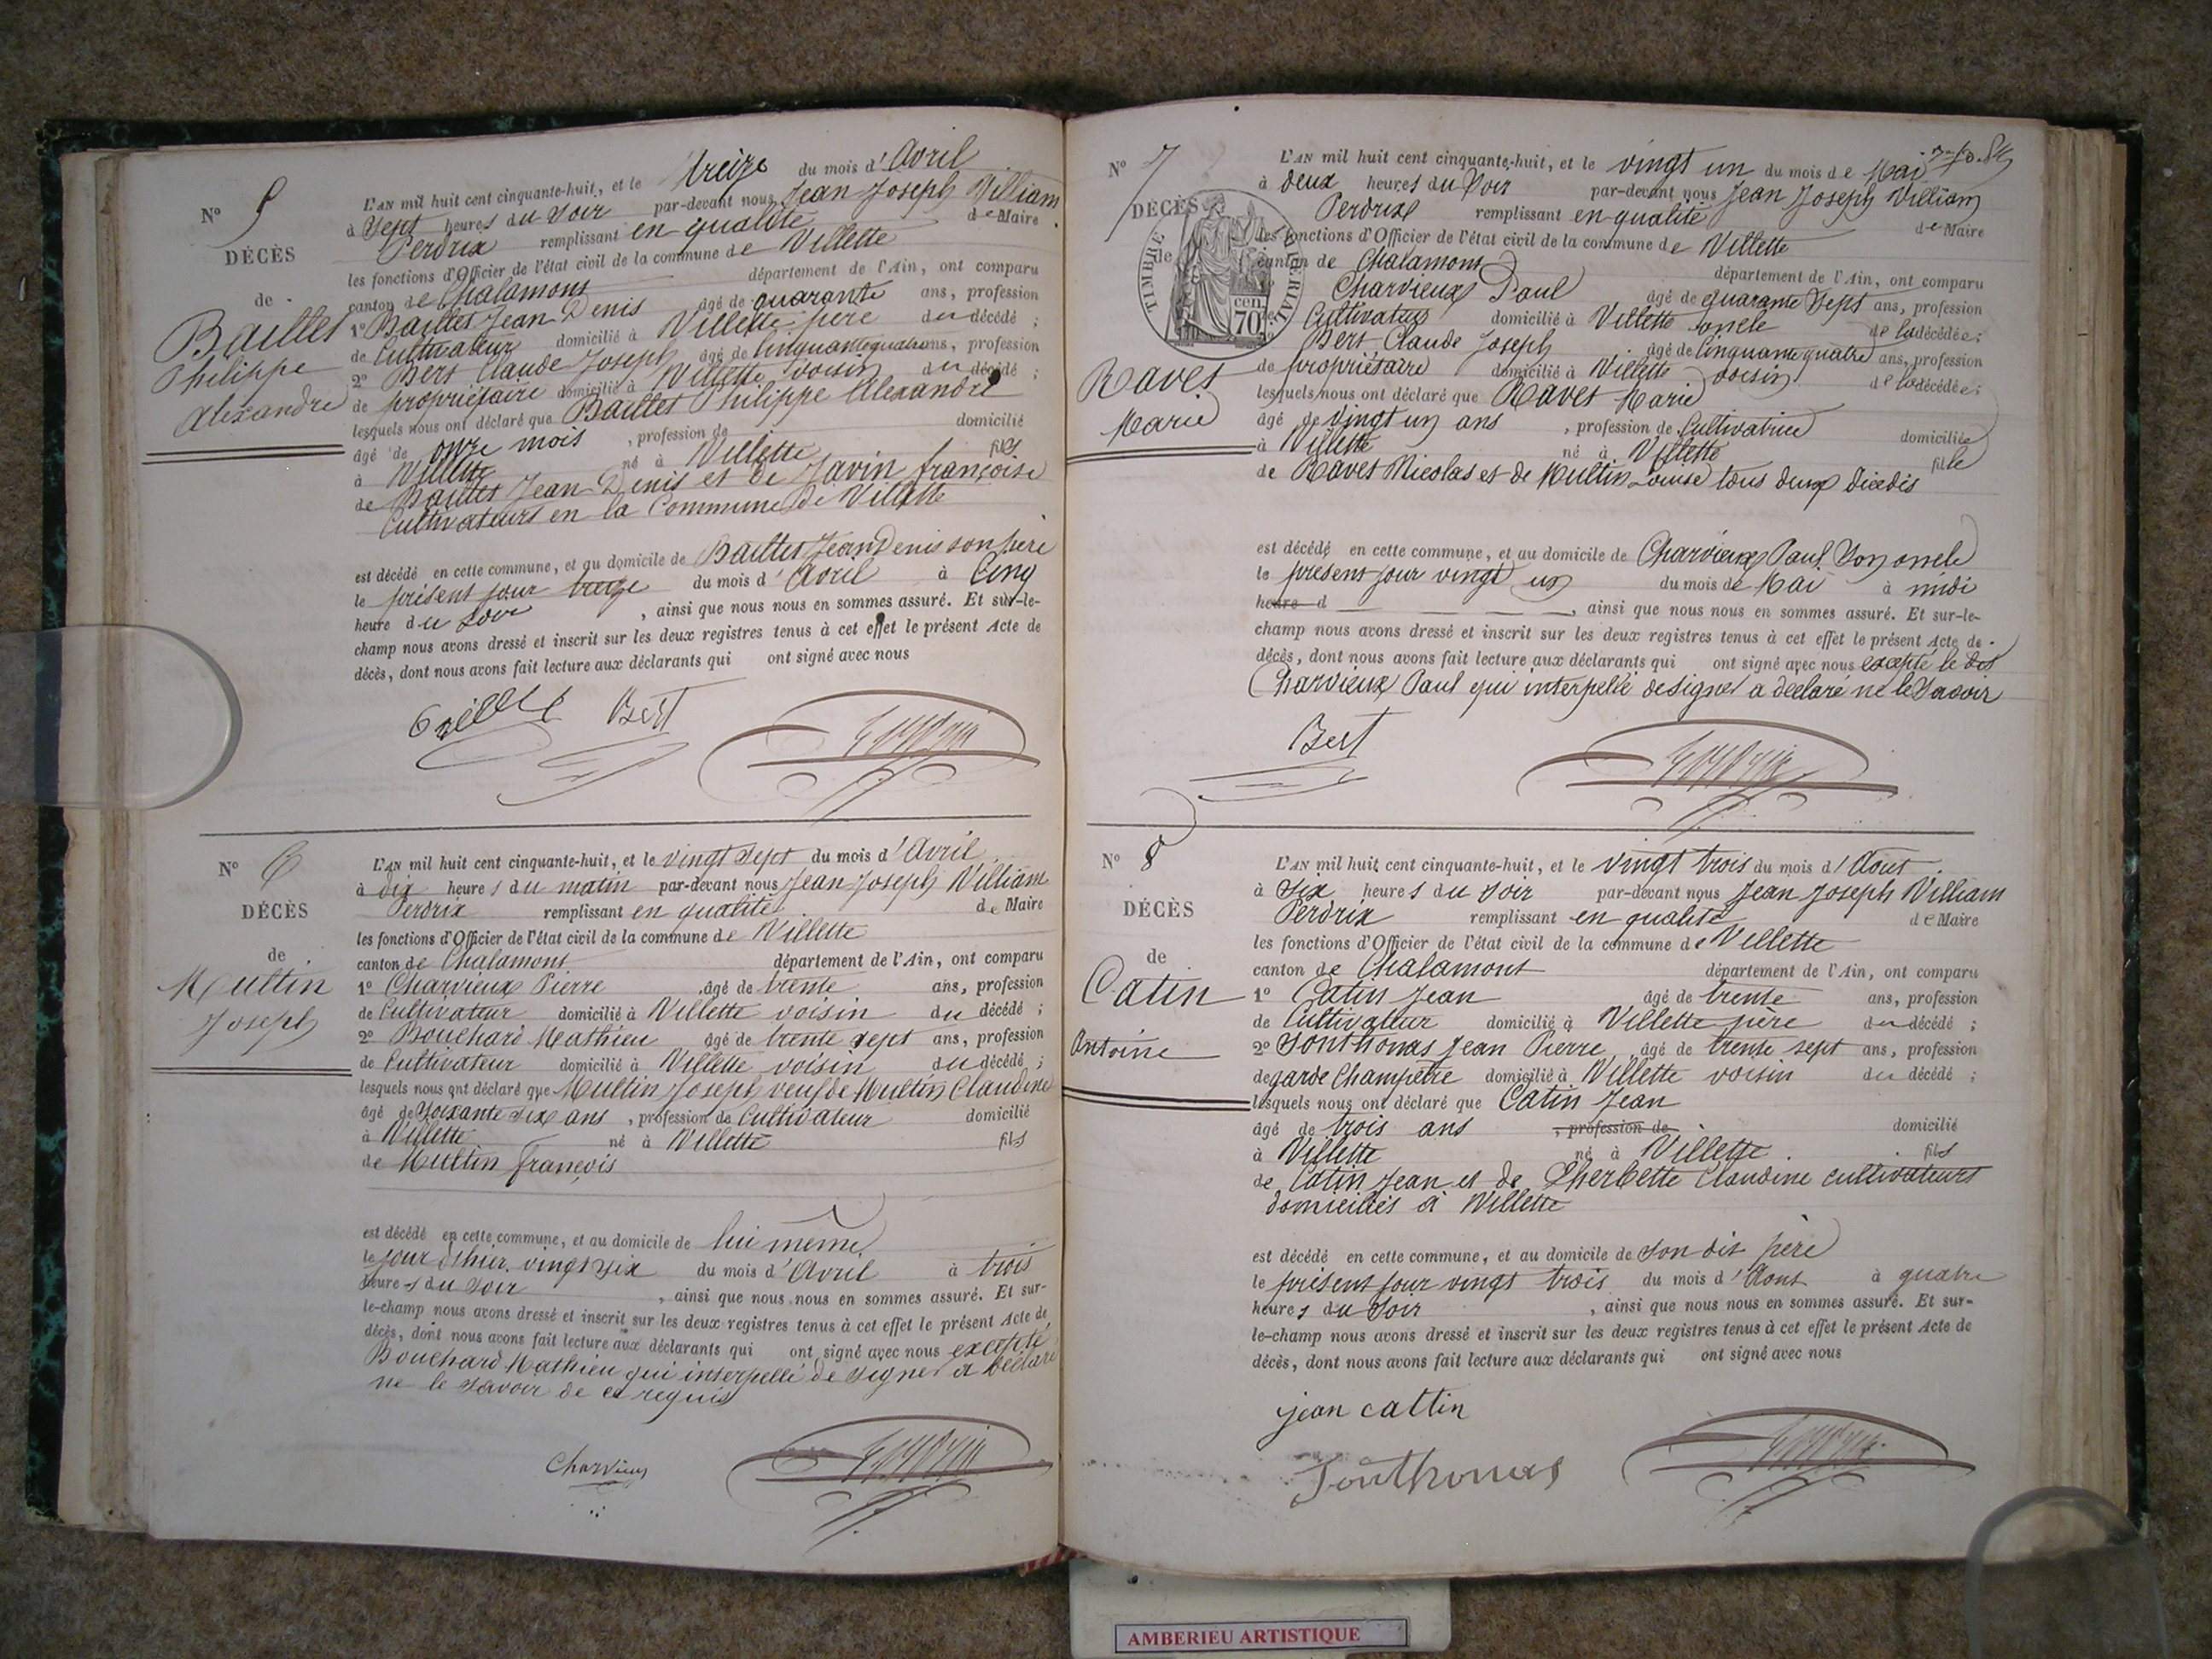 N° 5
DÉCÈS
de
Baillet
Philippe
Alexandre
L'AN mil huit cent cinquante-huit, et le treize du mois d'Avril
à Sept heures du Soir par-devant nous Jean Joseph William
Perdrix remplissant en qualité de Maire
les fonctions d'Officier de l'état civil de la commune de Villette
canton de Chalamont département de l'Ain, ont comparu
1° Baillet Jean Denis âgé de quarante ans, profession
de Cultivateur domicilié à Villette père du décédé ;
2° Bert Claude Joseph âgé de Cinquante quatre ans, profession
de propriétaire domicilié à Villette voisin du décédé ;
lesquels nous ont déclaré que Baillet Philippe Alexandre
âgé de onze mois , profession de domicilié
à Villette né à Villette fils
de Baillet Jean Denis et de Javin françoise
Cultivateurs en la Commune de Villette
est décédé en cette commune, et au domicile de Baillet Jean Denis son père
le présent jour treize du mois d'Avril à Cinq
heure du Soir , ainsi que nous nous en sommes assuré. Et sur-le-
champ nous avons dressé et inscrit sur les deux registres tenus à cet effet le présent Acte de
décès, dont nous avons fait lecture aux déclarants qui ont signé avec nous
Bert
N° 6
DÉCÈS
de
Multin
Joseph
L'AN mil huit cent cinquante-huit, et le vingt Sept du mois d'Avril
à dix heures du matin par-devant nous Jean Joseph William
Perdrix remplissant en qualité de Maire
les fonctions d'Officier de l'état civil de la commune de Villette
canton de Chalamont département de l'Ain, ont comparu
1° Charvieux Pierre âgé de trente ans, profession
de Cultivateur domicilié à Villette voisin du décédé ;
2° Bouchard Mathieu âgé de trente sept ans, profession
de Cultivateur domicilié à Villette voisin du décédé ;
lesquels nous ont déclaré que Multin Joseph veuf de Multin Claudine
âgé de Soixante dix ans , profession de Cultivateur domicilié
à Villette né à Villette fils
de Multin françois
est décédé en cette commune, et au domicile de lui même
le jour d'hier vingt six du mois d'Avril à trois
heures du Soir , ainsi que nous nous en sommes assuré. Et sur-
le-champ nous avons dressé et inscrit sur les deux registres tenus à cet effet le présent Acte de
décès, dont nous avons fait lecture aux déclarants qui ont signé avec nous excepté
Bouchard Mathieu qui interpellé de signer a déclaré
ne le savoir de ce requis
Charvieux
N° 7
DÉCÈS
de
TIMBRE IMPÉRIAL
70 cen
Ravet
Marie
L'AN mil huit cent cinquante-huit, et le vingt un du mois de Mai
à deux heures du Soir par-devant nous Jean Joseph William
Perdrix remplissant en qualité de Maire
les fonctions d'Officier de l'état civil de la commune de Villette
canton de Chalamont département de l'Ain, ont comparu
Charvieux Paul âgé de quarante Sept ans, profession
de Cultivateur domicilié à Villette oncle de la décédée ;
Bert Claude Joseph âgé de Cinquante quatre ans, profession
de propriétaire domicilié à Villette voisin de la décédée ;
lesquels nous ont déclaré que Ravet Marie
âgé de Vingt un ans , profession de Cultivatrice domiciliée
à Villette né à Villette fille
de Ravet Nicolas et de Multin Louise tous deux décédés
est décédé en cette commune, et au domicile de Charvieux Paul Son oncle
le présent jour vingt un du mois de Mai à midi
heure d , ainsi que nous nous en sommes assuré. Et sur-le-
champ nous avons dressé et inscrit sur les deux registres tenus à cet effet le présent Acte de
décès, dont nous avons fait lecture aux déclarants qui ont signé avec nous excepté le dit
Charvieux Paul qui interpellé de signer a déclaré ne le Savoir
Bert
N° 8
DÉCÈS
de
Catin
Antoine
L'AN mil huit cent cinquante-huit, et le vingt trois du mois d'Aout
à Six heures du Soir par-devant nous Jean Joseph William
Perdrix remplissant en qualité de Maire
les fonctions d'Officier de l'état civil de la commune de Villette
canton de Chalamont département de l'Ain, ont comparu
1° Catin Jean âgé de trente ans, profession
de Cultivateur domicilié à Villette père du décédé ;
2° Jonthomas Jean Pierre âgé de trente sept ans, profession
de garde Champêtre domicilié à Villette voisin du décédé ;
lesquels nous ont déclaré que Catin Jean
âgé de trois ans , profession de domicilié
à Villette né à Villette fils
de Catin Jean et de Cherbette Claudine cultivateurs
domiciliés à Villette
est décédé en cette commune, et au domicile de Son dit père
le présent jour vingt trois du mois d'Aout à quatre
heures du Soir , ainsi que nous nous en sommes assuré. Et sur-
le-champ nous avons dressé et inscrit sur les deux registres tenus à cet effet le présent Acte de
décès, dont nous avons fait lecture aux déclarants qui ont signé avec nous
jean cattin
Jonthomas
AMBERIEU ARTISTIQUE